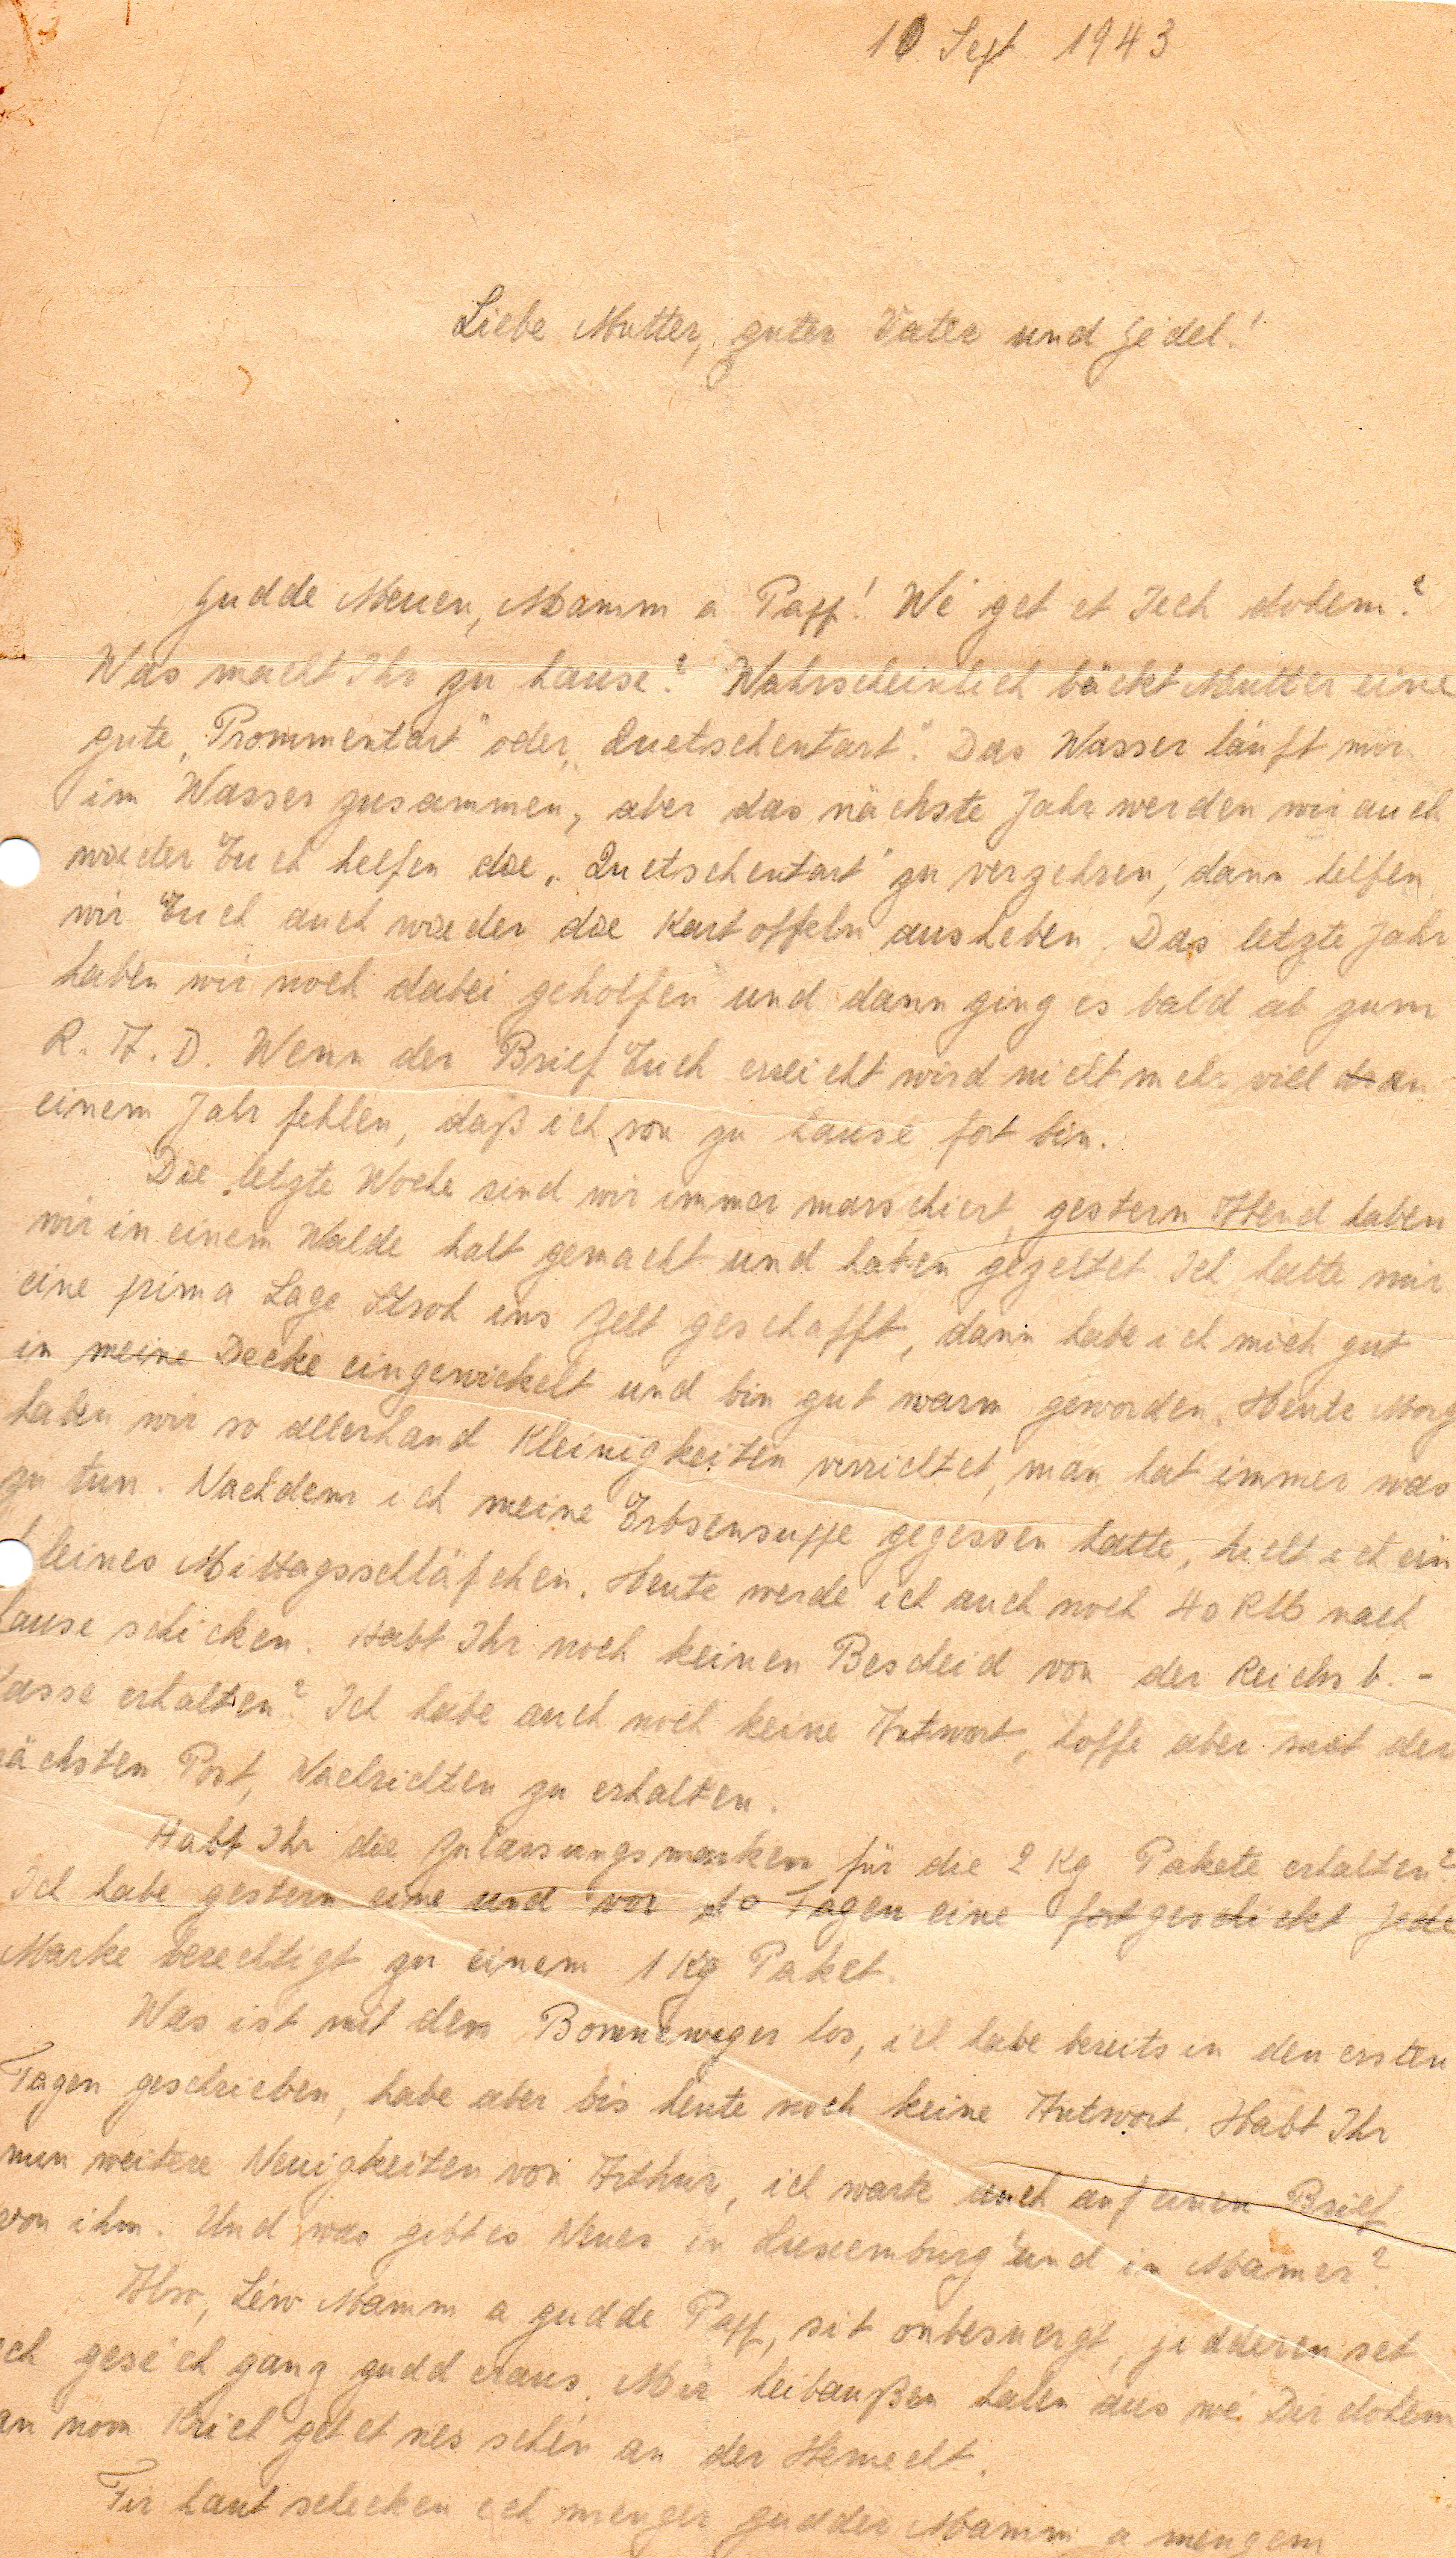 10 Sept 1943
Liebe Mutter, guter Vater und Jedel!
Gudde Muen, Mamm a Papp! Wé get et Iech dohem?
Was macht Ihr zu hause? Wahrscheinlich bäckt Mutter eine
gute „Prommentart" oder „Quetschentart". Das Wasser läuft mir
im Wasser zusammen, aber das nächste Jahr werden wir auch
wieder Euch helfen die „Quetschentart" zu verzehren, dann helfen
wir Euch auch wieder die Kartoffeln ausheben. Das letzte Jahr
haben wir noch dabei geholfen und dann ging es bald ab zum
R. A. D. Wenn der Brief Euch erreicht wird nicht mehr viel an
einem Jahr fehlen, daß ich von zu hause fort bin.
Die letzte Woche sind wir immer marschiert, gestern Abend haben
wir in einem Walde halt gemacht und haben gezeltet. Ich hatte mir
eine prima Lage Stroh ins Zelt geschafft, dann habe ich mich gut
in meine Decke eingewickelt und bin gut warm geworden. Heute Morg
haben wir so allerhand Kleinigkeiten verrichtet, man hat immer was
zu tun. Nachdem ich meine Erbsensuppe gegessen hatte, hielt ich ein
kleines Mittagsschläfchen. Heute werde ich auch noch 40 RM nach
hause schicken. Habt Ihr noch keinen Bescheid von der Reichs b.-
kasse erhalten? Ich habe auch noch keine Antwort, hoffe aber mit der
nächsten Post, Nachrichten zu erhalten.
Habt Ihr die Zulassungsmarken für die 2 Kg Pakete erhalten?
Ich habe gestern eine und vor 10 Tagen eine fortgeschickt jede
Marke berechtigt zu einem 1 Kg Paket.
Was ist mit den Bonneweger los, ich habe bereits in den ersten
Tagen geschrieben, habe aber bis heute noch keine Antwort. Habt Ihr
nun weitere Neuigkeiten von Arthur, ich warte auch auf einen Brief
von ihm. Und was gibt es Neues in Luxemburg und in Mamer?
Also, Léiw Mamm a gudde Papp, sit onbesuergt, jidderen set
ech gesé'ch ganz gudd eraus. Mir heibaußen halen aus wé Dir dohem
an nom Krich get et nes schéin an der Hemecht.
Fir haut schecken ech menger gudder Mamm a mengem